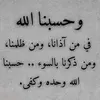 وحسبنا الله
في من آذانا، ومن ظلمنا،
ومن ذكرنا بالسوء .. حسبنا
الله وحده وكفى.